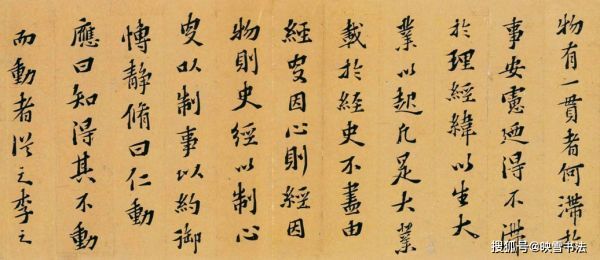 物有一貫者何滯於
事安慮廼得不滯
於理經緯以生大
業以起凡是大業
載於經史不盡由
經史因心則經因
物則史經以制心
史以制事以約御
愽靜脩曰仁動
應曰知得其不動
而動者從之李之
搜狐号@映雪书法